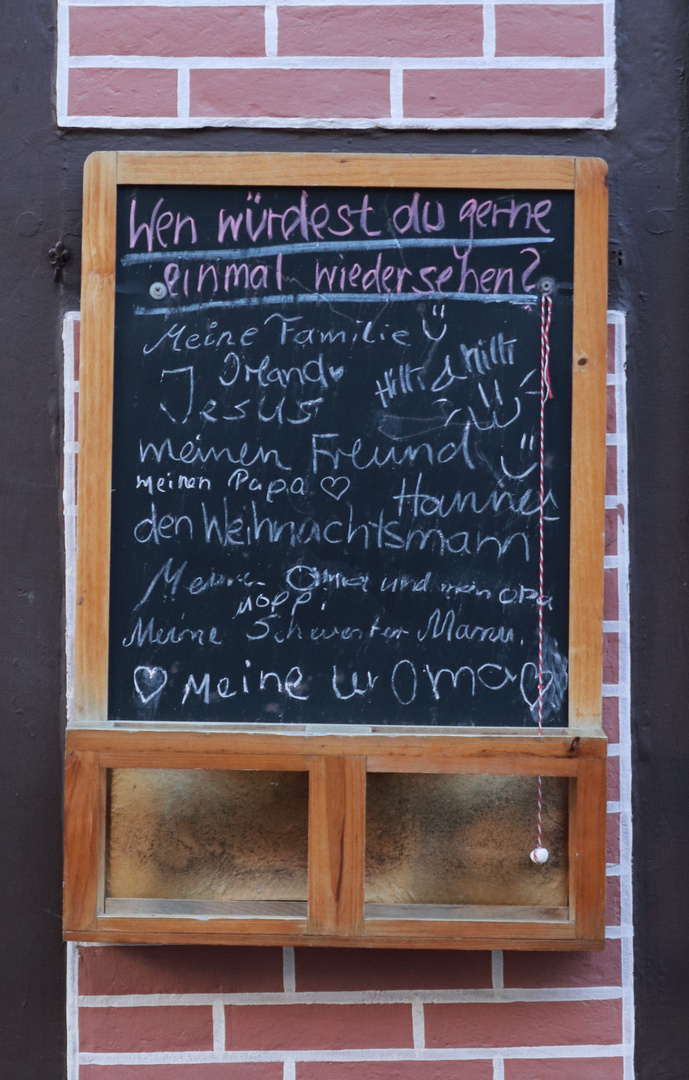 Wen würdest du gerne
einmal wiedersehen?
Meine Familie
Irland
Jesus
meinen Freund
meinen Papa
Hannes
den Weihnachtsmann
Meine Oma und mein opa
Meine Schwester
Meine Ur Oma